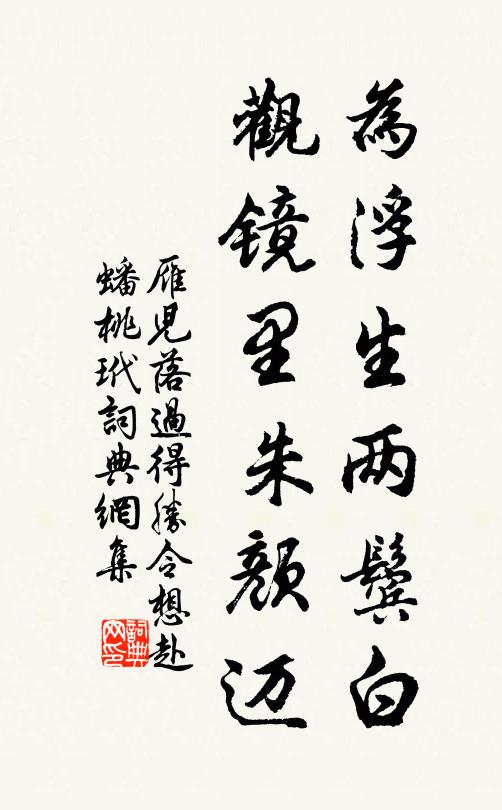 為浮生两鬓白
觀镜里朱颜迈
雁児落過得勝令想赴
蟠桃玳詞典網集
詞典网印